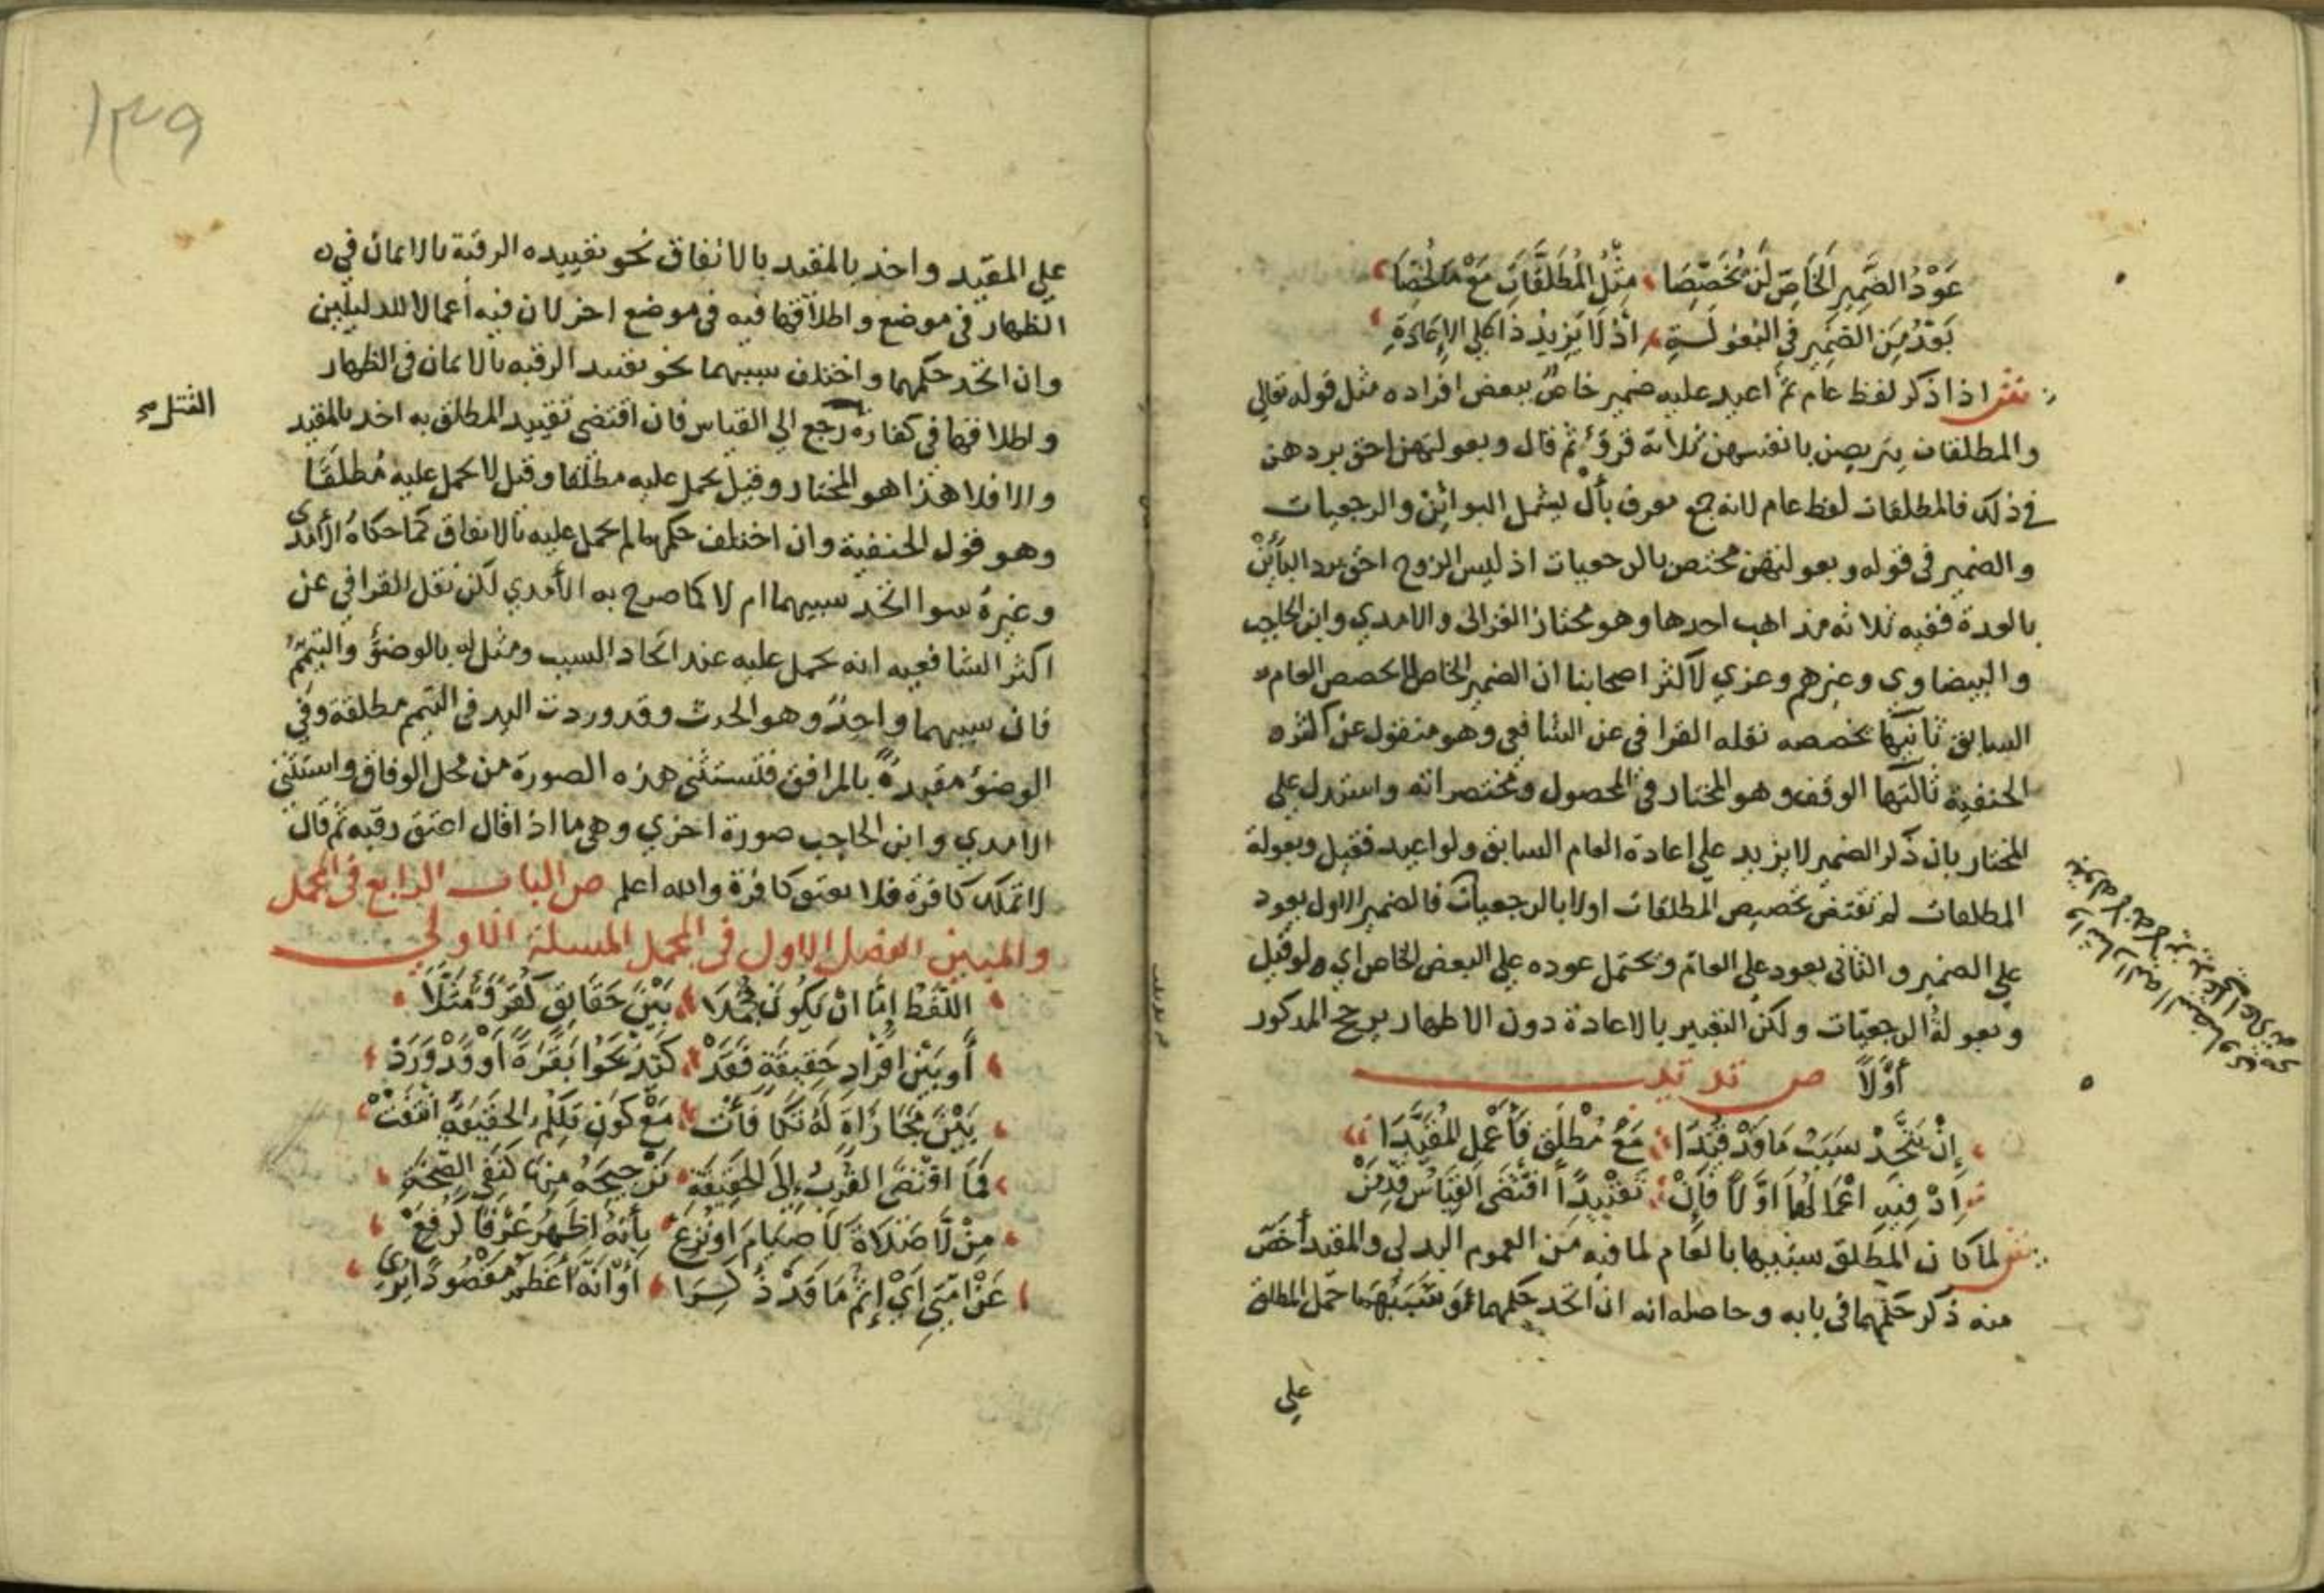 عَوْدُ الضَّمِيرِ الخَاصِّ لَنْ يُخَصِّصَا مِثْلُ المُطَلَّقَاتِ مَعْ مَا لُخِّصَا
بَعْدُ مِنَ الضَّمِيرِ في البُعُولَةِ اذْ لَا يَزِيدُ ذَا عَلَى الإِعَادَةِ
ش اذا ذكر لفظ عام ثم اعيد عليه ضمير خاص ببعض افراده مثل قوله تعالي
والمطلقات يتربصن بانفسهن ثلاثة قروء ثم قال وبعولتهن احق بردهن
في ذلك فالمطلقات لفظ عام لانه جمع معرف بأل يشمل البوائن والرجعيات
والضمير في قوله وبعولتهن مختص بالرجعيات اذ ليس الزوج احق برد البائن
بالعدة ففيه ثلاثه مذاهب احدها وهو مختار الغزالي والامدي وابن الحاجب
والبيضاوي وغيرهم وعزي لاكثر اصحابنا ان الضمير الخاص لا يخصص العام
السابق ثانيها يخصصه نقله القرافي عن الشافعي وهو منقول عن اكثر
الحنفية ثالثها الوقف وهو المختار في المحصول ومختصراته واستدل علي
المختار بان ذكر الضمير لا يزيد علي اعادة العام السابق ولو اعيد فقيل وبعولة
المطلقات لم تقتض تخصيص المطلقات اولا بالرجعيات فالضمير الاول يعود
علي الضمير والثاني يعود علي العام ويحتمل عوده علي البعض الخاص اي ولو قيل
وبعولة الرجعيات ولكن التعبير بالاعادة دون الاظهار يرجح المذكور
أوّلاً ص تذنيب
إِنْ يَتَّحِدْ سَبَبُ مَا قَدْ قُيِّدَا مَعْ مُطْلَقٍ فَأَعْمِلِ المُقَيَّدَا
اذْ فِيهِ اعْمَالُهُمَا اوَّلًا فَإِنْ تَقْيِيدًا اقْتَضَى القِيَاسُ قَدْ قَمِنْ
ش لما كان المطلق شبيها بالعام لما فيه من العموم البدلي والمقيد أخص
منه ذكر حكمهما في بابه وحاصله انه ان اتحد حكمهما وسببهما حمل المطلق
علي
١٣٩
علي المقيد واخذ بالمقيد بالاتفاق نحو تقييده الرقبة بالايمان في
الظهار في موضع واطلاقها فيه في موضع اخر لان فيه أعمالا للدليلين
وان اتحد حكمهما واختلف سببهما نحو تقييد الرقبه بالايمان في الظهار
القتل
واطلاقها في كفارة رجع الي القياس فان اقتضى تقييد المطلق به اخذ بالمقيد
والا فلا هذا هو المختار وقيل يحمل عليه مطلقا وقيل لا يحمل عليه مُطلقًا
وهو قول الحنفية وان اختلف حكمهما لم يحمل عليه بالاتفاق كما حكاه الآمدي
وغيره سوا اتحد سببهما ام لا كما صرح به الآمدي لكن نقل القرافي عن
اكثر الشافعيه انه يحمل عليه عند اتحاد السبب ومثل له بالوضوء والتيمم
فان سببهما واحد وهو الحدث وقد وردت اليد في التيمم مطلقة وفي
الوضوء مقيدة بالمرافق فلتستثنى هذه الصورة من محل الوفاق واستثني
الامدي وابن الحاجب صورة اخري وهي ما اذا قال اعتق رقبه ثم قال
لا تملك كافرة فلا يعتق كافرة والله أعلم ص الباب الرابع في المجمل
والمبين الفصل الاول في المجمل المسلة الاولي
اللَّفْظُ إِمَّا انْ يَكُونَ مُجْمَلَا بَيْنَ حَقَايِقَ كَقُرْءٍ مَثَلَا
أَو بَيْنَ افْرَادِ حَقِيقَةٍ فَقَدْ كَتَذْبَحُوا بَقَرَةً اوْ قَدْ وَرَدْ
بَيْنَ مَجَازَاةٍ لَهُ تَكَافَأَتْ مَعْ كَوْنِ تِلْكُمُ الحَقِيقَةِ انْتَفَتْ
فَمَا اقْتَضَى القُرْبُ إِلَى الحَقِيقَةِ تَرْجِيحَهُ مِنْهَا كَنَفْيِ الصِّحَّةِ
مِنْ لَا صَلَاةَ لَا صِيَامَ اونُزِعْ بِأَنَّهُ اظْهَرُ عُرْفًا لرُفِعْ
عَنْ امَّتِي أَيْ إِثْمُ مَا قَدْ ذُكِرَا أَوْ انَّهُ أَعْظَمُ مَقْصُودًا يُرى